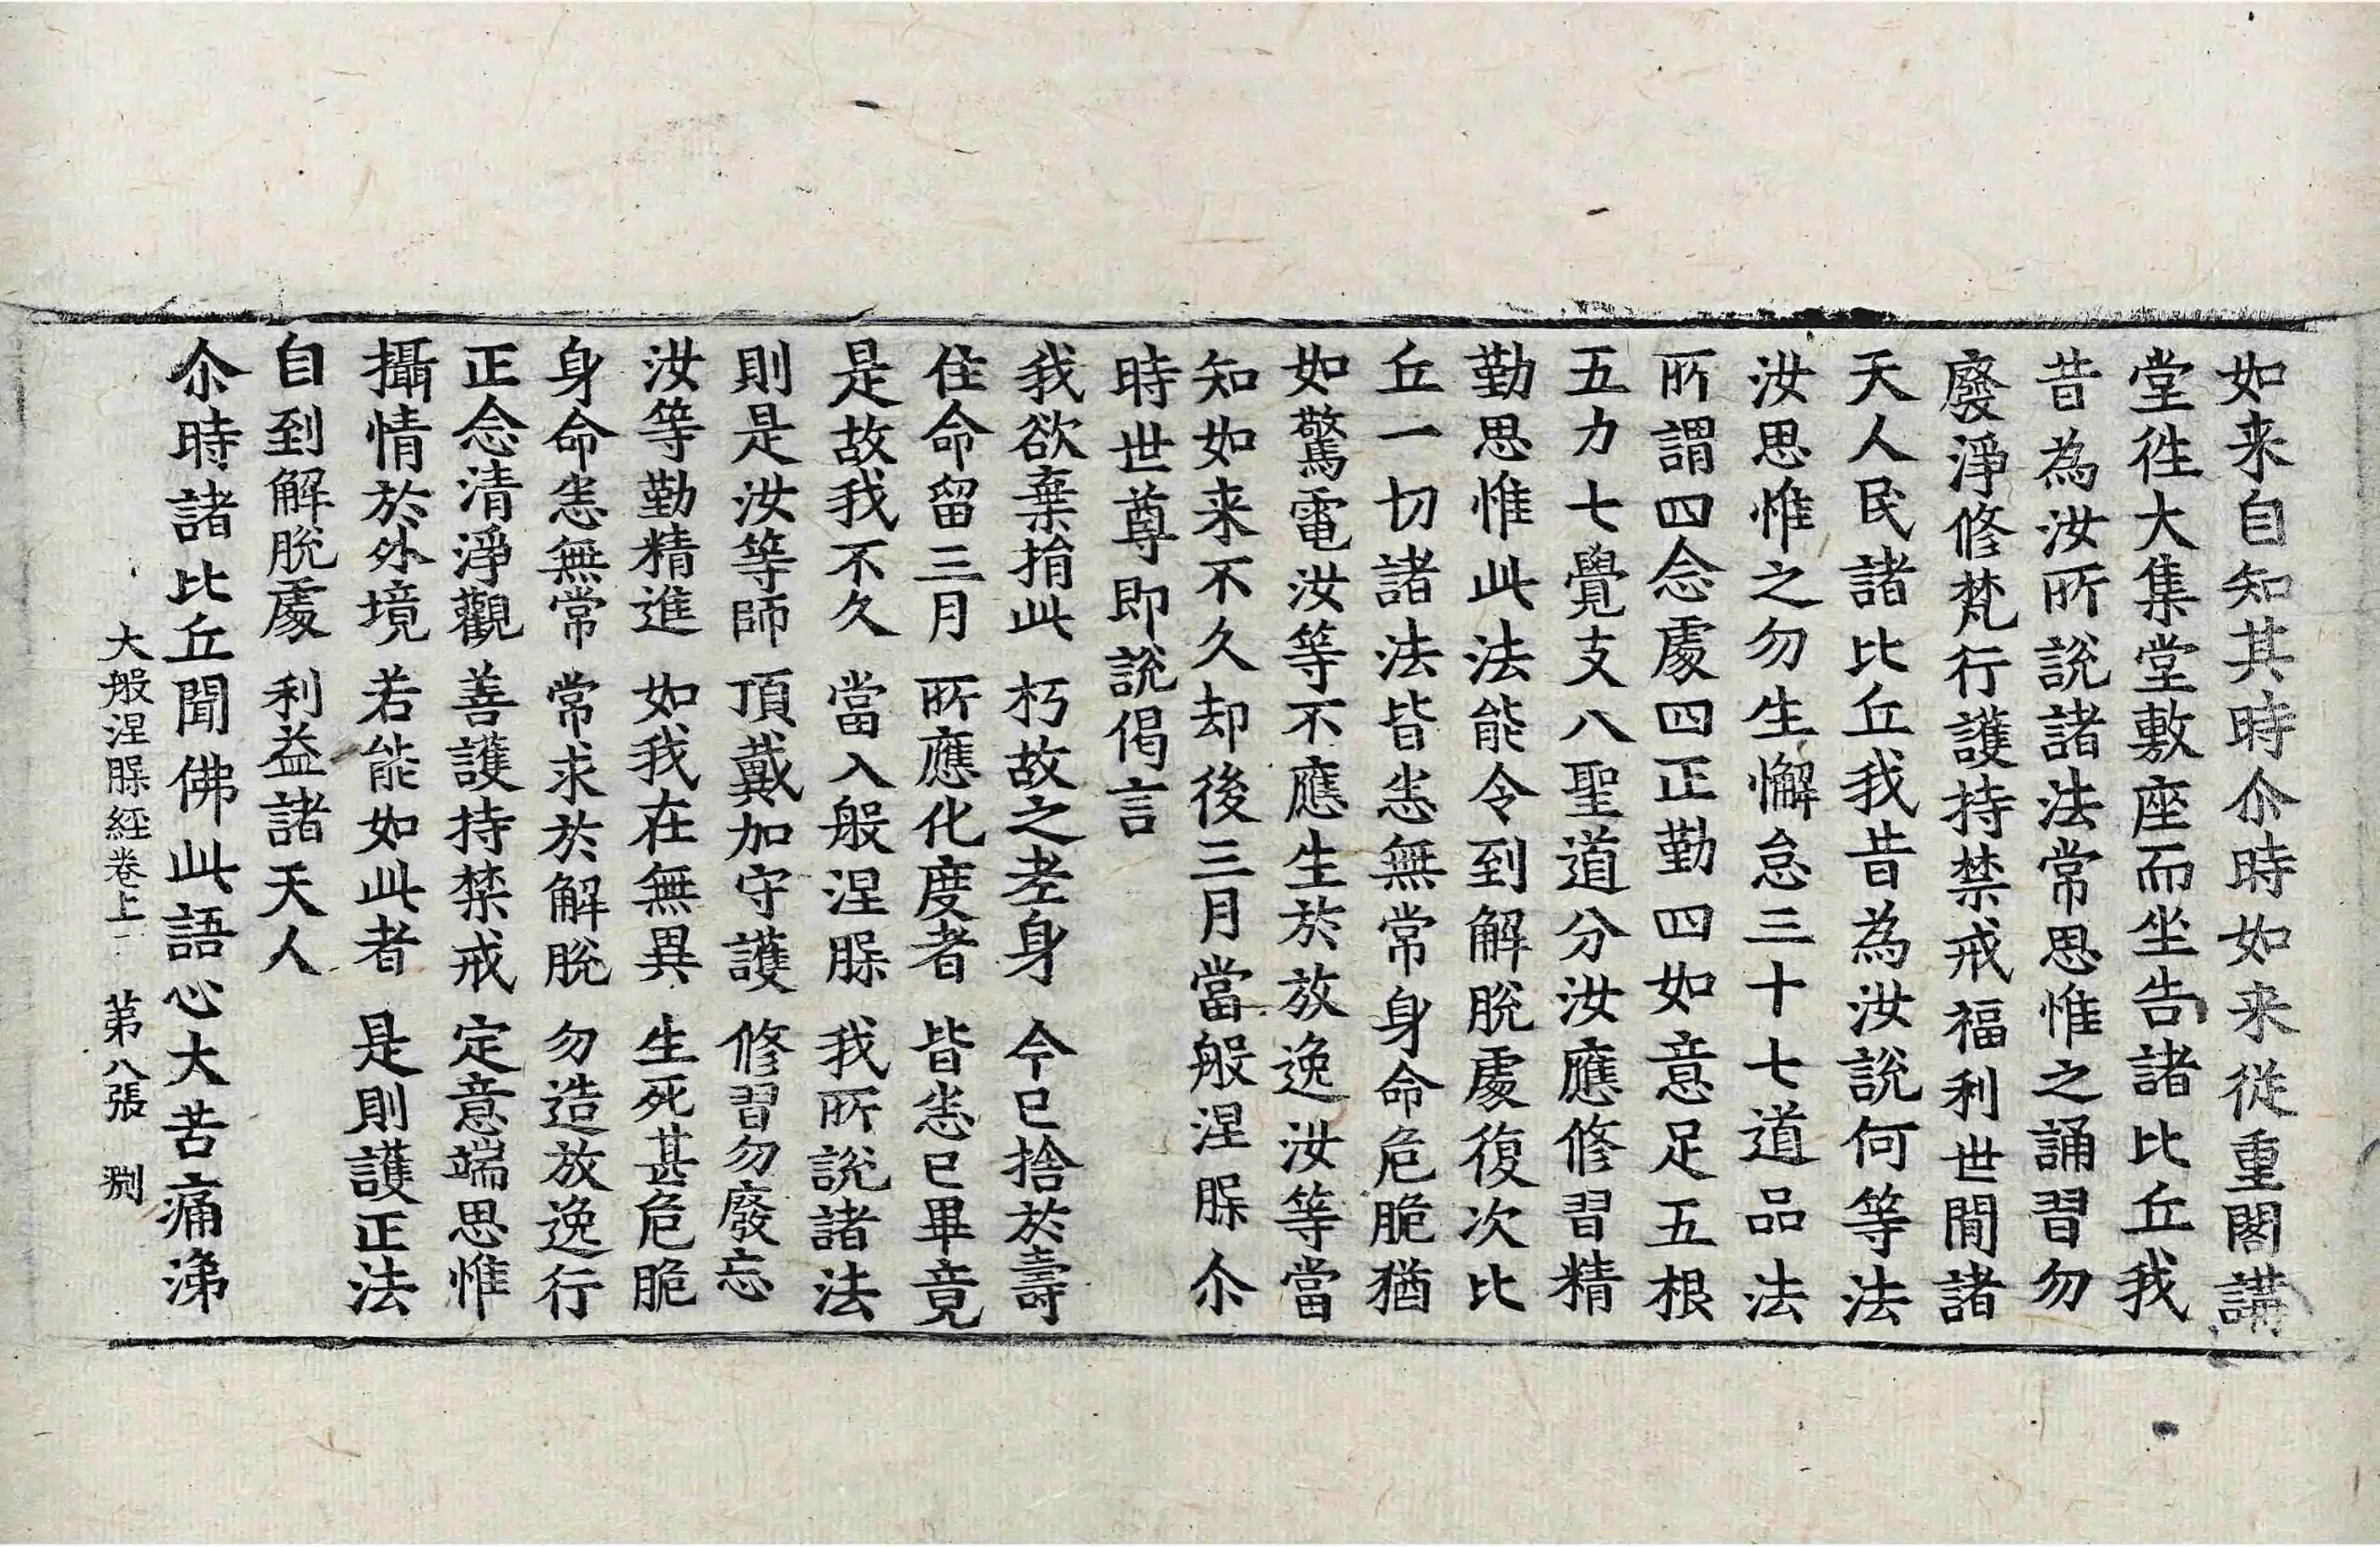 如来自知其時尒時如来從重閣講
堂徃大集堂敷座而坐告諸比丘我
昔為汝所說諸法常思惟之誦習勿
廢淨修梵行護持禁戒福利世間諸
天人民諸比丘我昔為汝說何等法
汝思惟之勿生懈怠三十七道品法
所謂四念處四正勤四如意足五根
五力七覺支八聖道分汝應修習精
勤思惟此法能令到解脫處復次比
丘一切諸法皆悉無常身命危脆猶
如驚電汝等不應生於放逸汝等當
知如来不久却後三月當般涅槃尒
時世尊即說偈言
我欲棄捐此 朽故之老身 今已捨於壽
住命留三月 所應化度者 皆悉已畢竟
是故我不久 當入般涅槃 我所說諸法
則是汝等師 頂戴加守護 修習勿廢忘
汝等勤精進 如我在無異 生死甚危脆
身命悉無常 常求於解脫 勿造放逸行
正念清淨觀 善護持禁戒 定意端思惟
攝情於外境 若能如此者 是則護正法
自到解脫處 利益諸天人
尒時諸比丘聞佛此語心大苦痛涕
大般涅槃經卷上 第八張